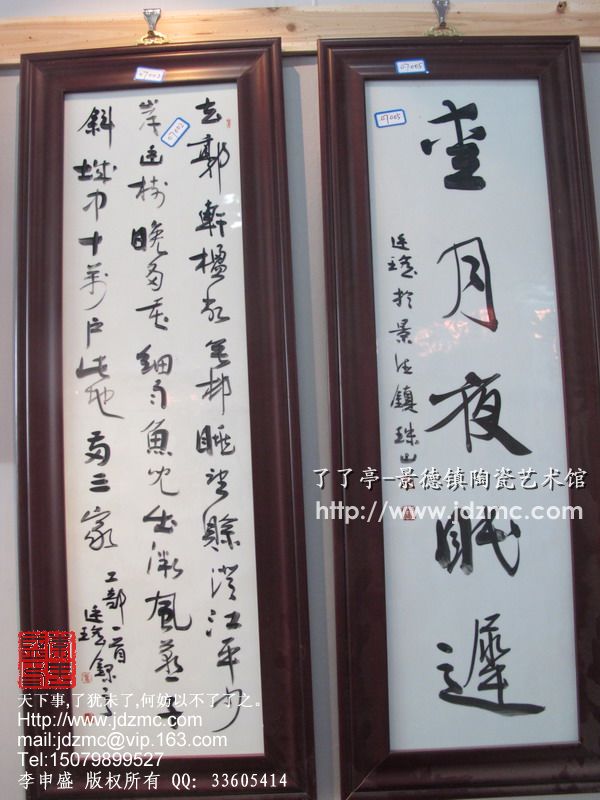 去郭軒楹敞無村眺望賒澄江平少
岸幽樹晚多花細雨魚兒出微風燕子
斜城中十萬戶此地兩三家
工部一首
07005
07005
愛月夜眠遲
於景德鎮珠山
了了亭-景德镇陶瓷艺术馆
http://www.jdzmc.com
天下事,了犹未了,何妨以不了了之。
Http://www.jdzmc.com
mail:jdzmc@vip.163.com
Tel:15079899527
李申盛 版权所有 QQ: 33605414